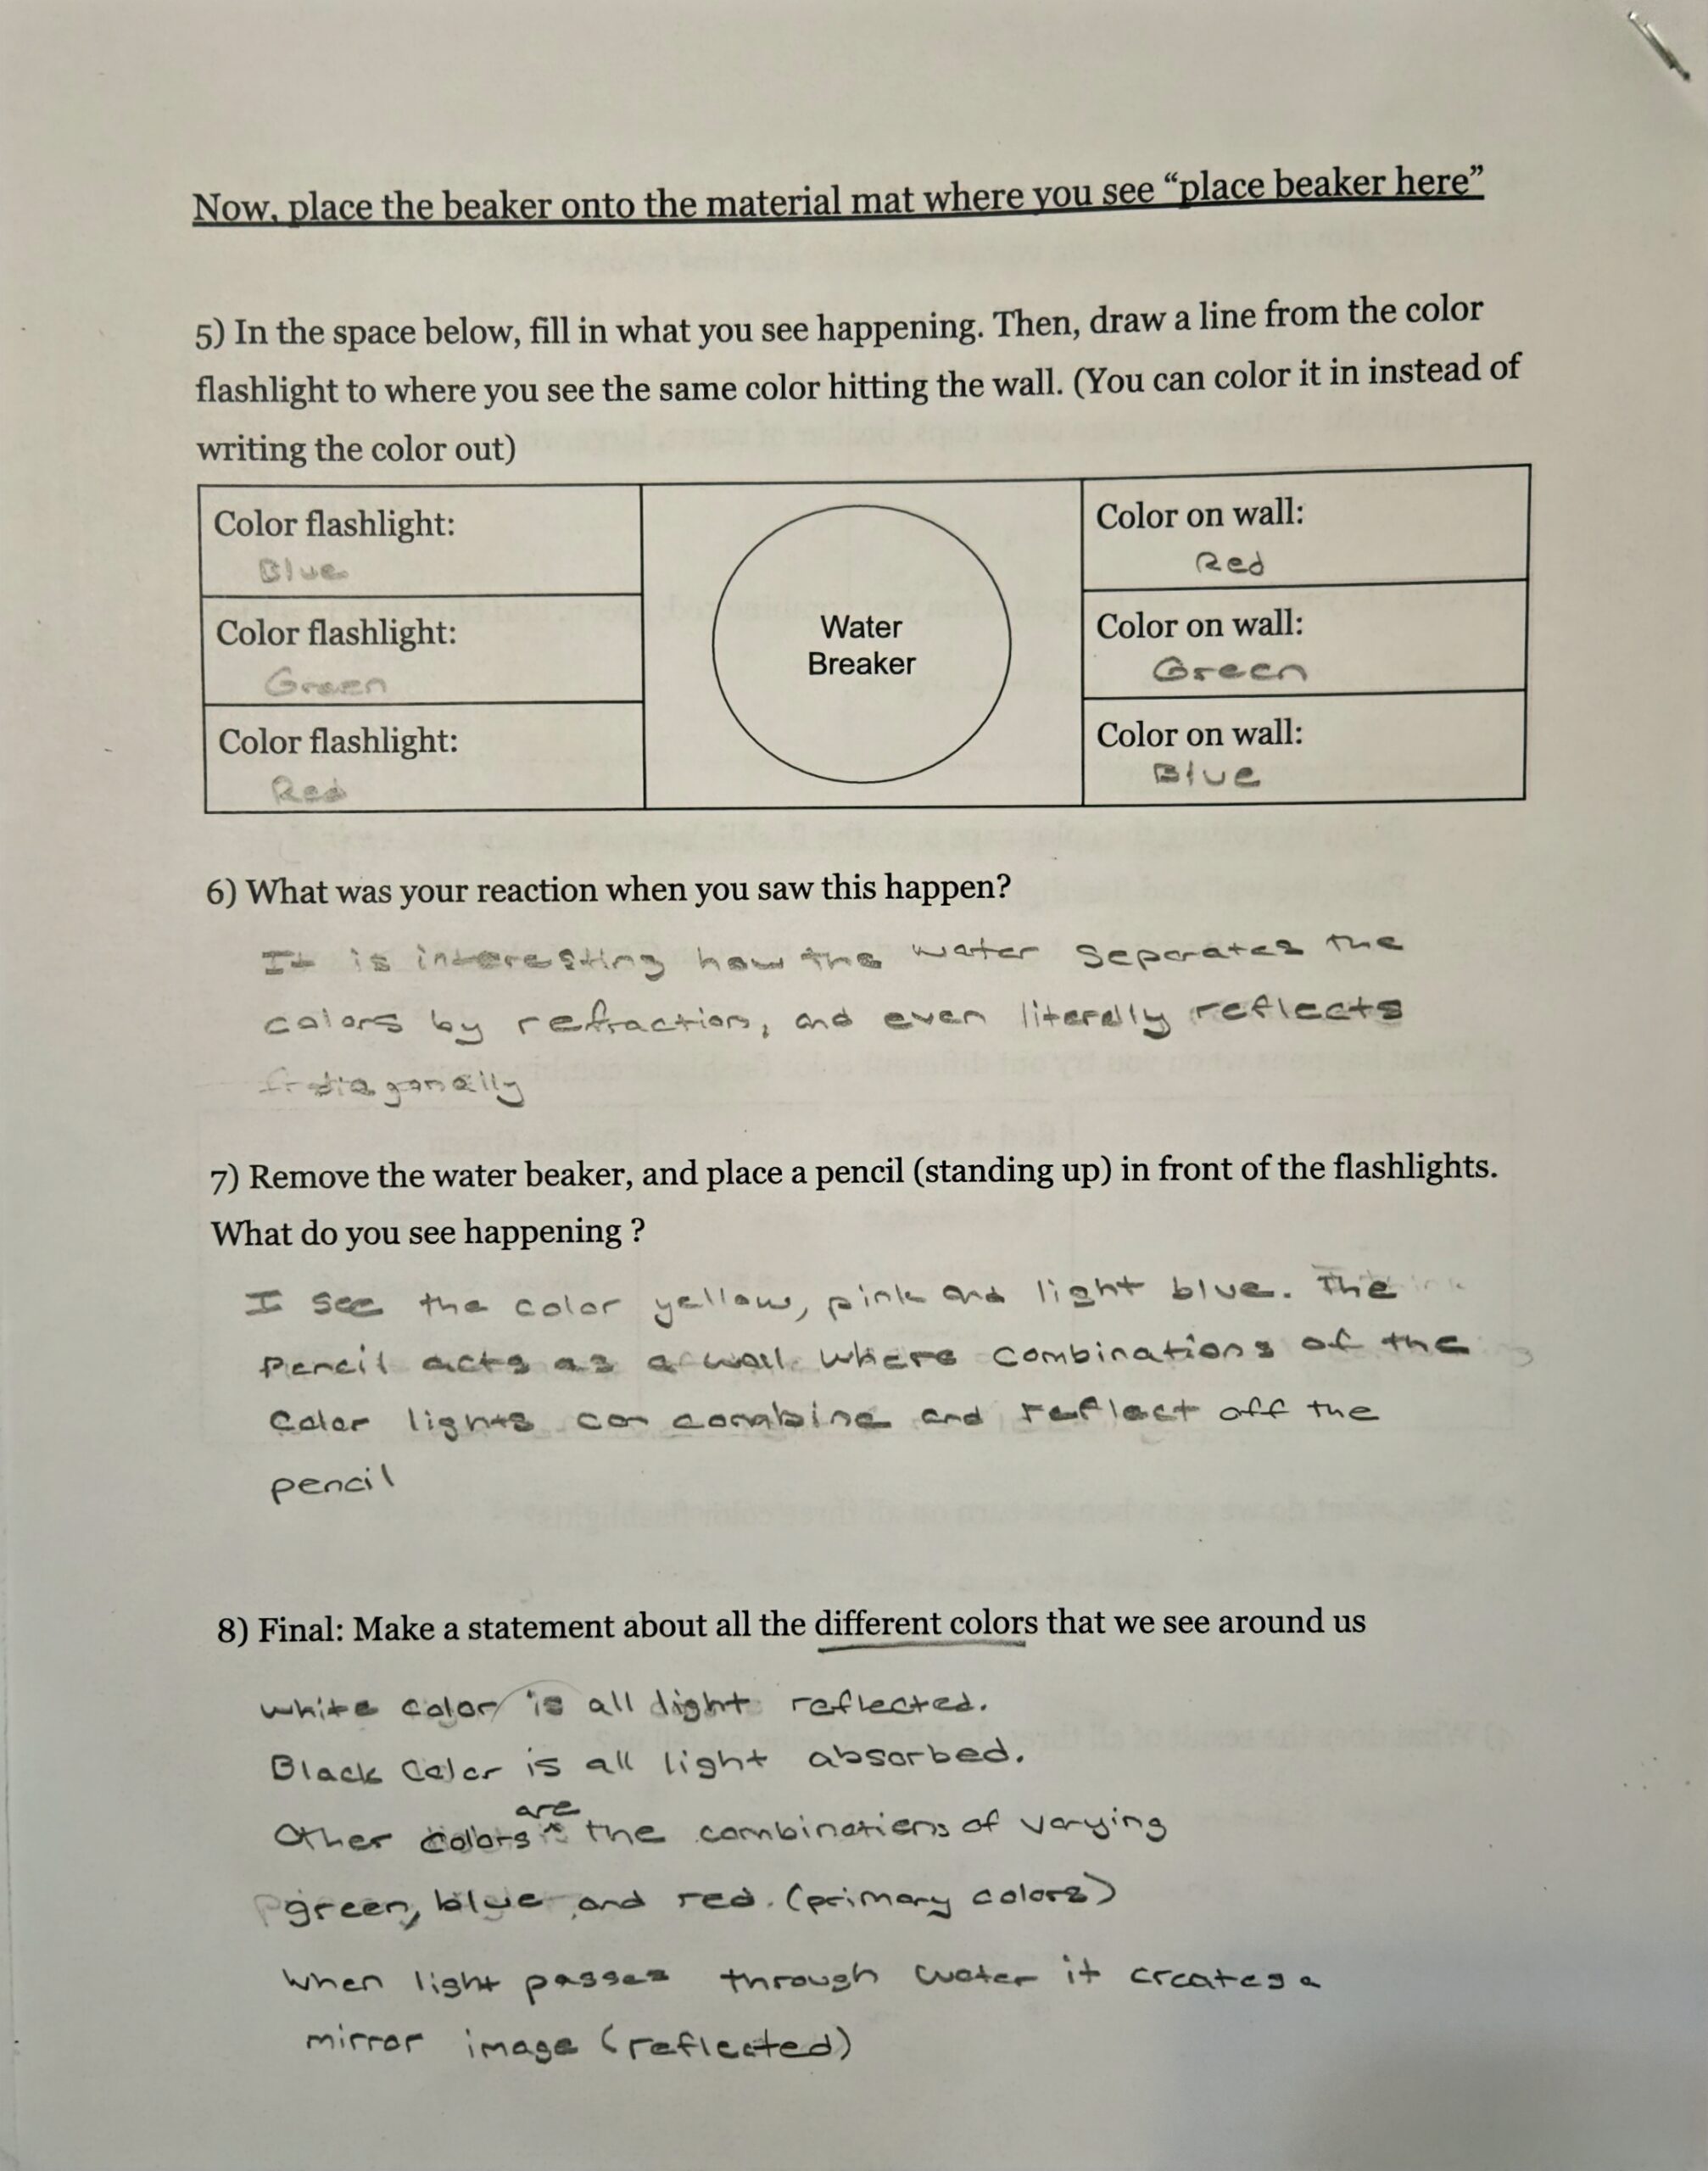 Now, place the beaker onto the material mat where you see “place beaker here”
5) In the space below, fill in what you see happening. Then, draw a line from the color
flashlight to where you see the same color hitting the wall. (You can color it in instead of
writing the color out)
Color flashlight:
Blue
Color flashlight:
Green
Color flashlight:
Red
Water
Breaker
Color on wall:
Red
Color on wall:
Green
Color on wall:
Blue
6) What was your reaction when you saw this happen?
It is interesting how the water separates the
colors by refraction, and even literally reflects
diagonally
7) Remove the water beaker, and place a pencil (standing up) in front of the flashlights.
What do you see happening ?
I see the color yellow, pink and light blue. The
pencil acts as a wall where combinations of the
color lights can combine and reflect off the
pencil
8) Final: Make a statement about all the different colors that we see around us
white color is all light reflected.
Black color is all light absorbed.
Other colors are the combinations of varying
green, blue and red. (primary colors)
when light passes through water it creates a
mirror image (reflected)